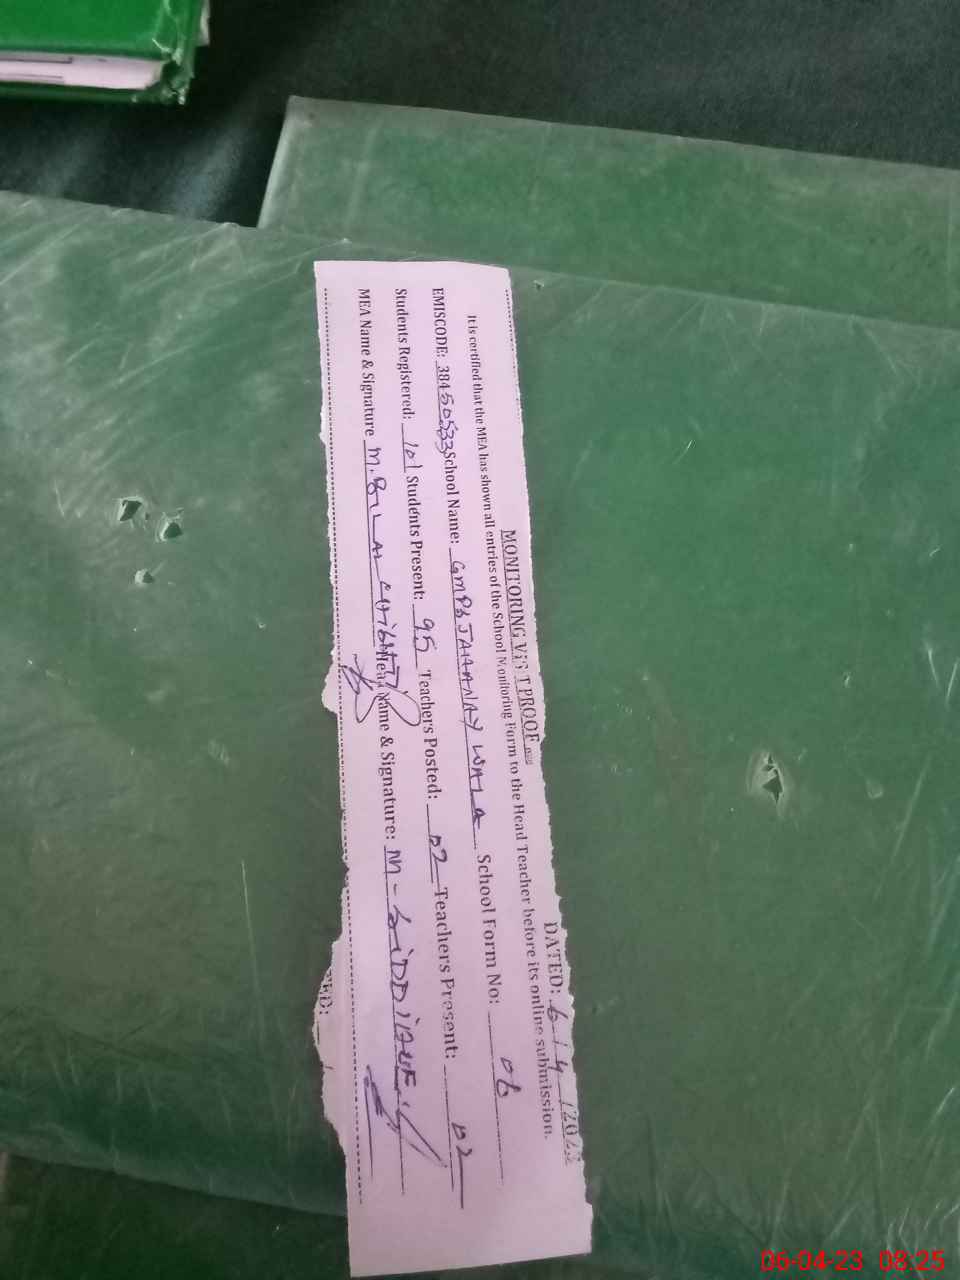 MONITORING VISIT PROOF
DATED: 6/4/2023
It is certified that the MEA has shown all entries of the School Monitoring Form to the Head Teacher before its online submission.
EMISCODE: 38450533 School Name: GMPS JAHANAY WALA School Form No: 06
Students Registered: 101 Students Present: 95 Teachers Posted: 02 Teachers Present: 02
MEA Name & Signature M. BILAL Head Name & Signature: M-SiDDiQUE
TED:
06-04-23 08:25